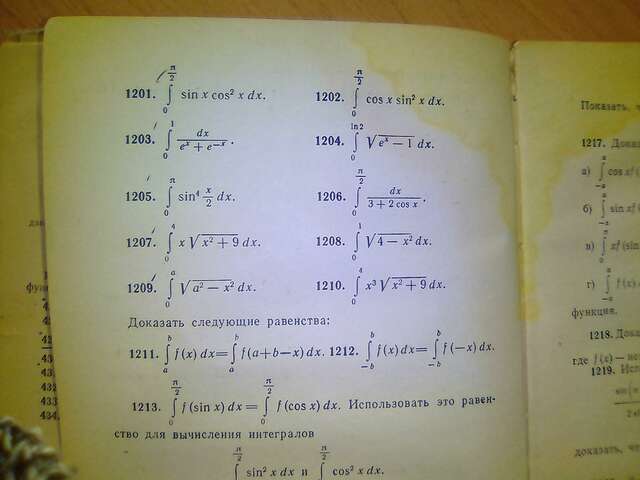 1201. ∫₀^{π/2} sin x cos² x dx. 1202. ∫₀^{π/2} cos x sin² x dx.
1203. ∫₀^{1} dx/(eˣ + e⁻ˣ). 1204. ∫₀^{ln 2} √(eˣ − 1) dx.
1205. ∫₀^{π} sin⁴ (x/2) dx. 1206. ∫₀^{π/2} dx/(3 + 2 cos x).
1207. ∫₀^{4} x √(x² + 9) dx. 1208. ∫₀^{1} √(4 − x²) dx.
1209. ∫₀^{a} √(a² − x²) dx. 1210. ∫₀^{4} x³ √(x² + 9) dx.
Доказать следующие равенства:
1211. ∫ₐ^{b} f(x) dx = ∫ₐ^{b} f(a+b−x) dx. 1212. ∫₋b^{b} f(x) dx = ∫₋b^{b} f(−x) dx.
1213. ∫₀^{π/2} f(sin x) dx = ∫₀^{π/2} f(cos x) dx. Использовать это равен-
ство для вычисления интегралов
∫^{π/2} sin² x dx и ∫^{π/2} cos² x dx.
Показать,
1217.
а) ∫₋a^{a} cos x
б) ∫₋a^{a} sin x
в) ∫₀
г) ∫₋a^{a} f(x)
функция.
1218.
где f(x) —
1219.
доказать,